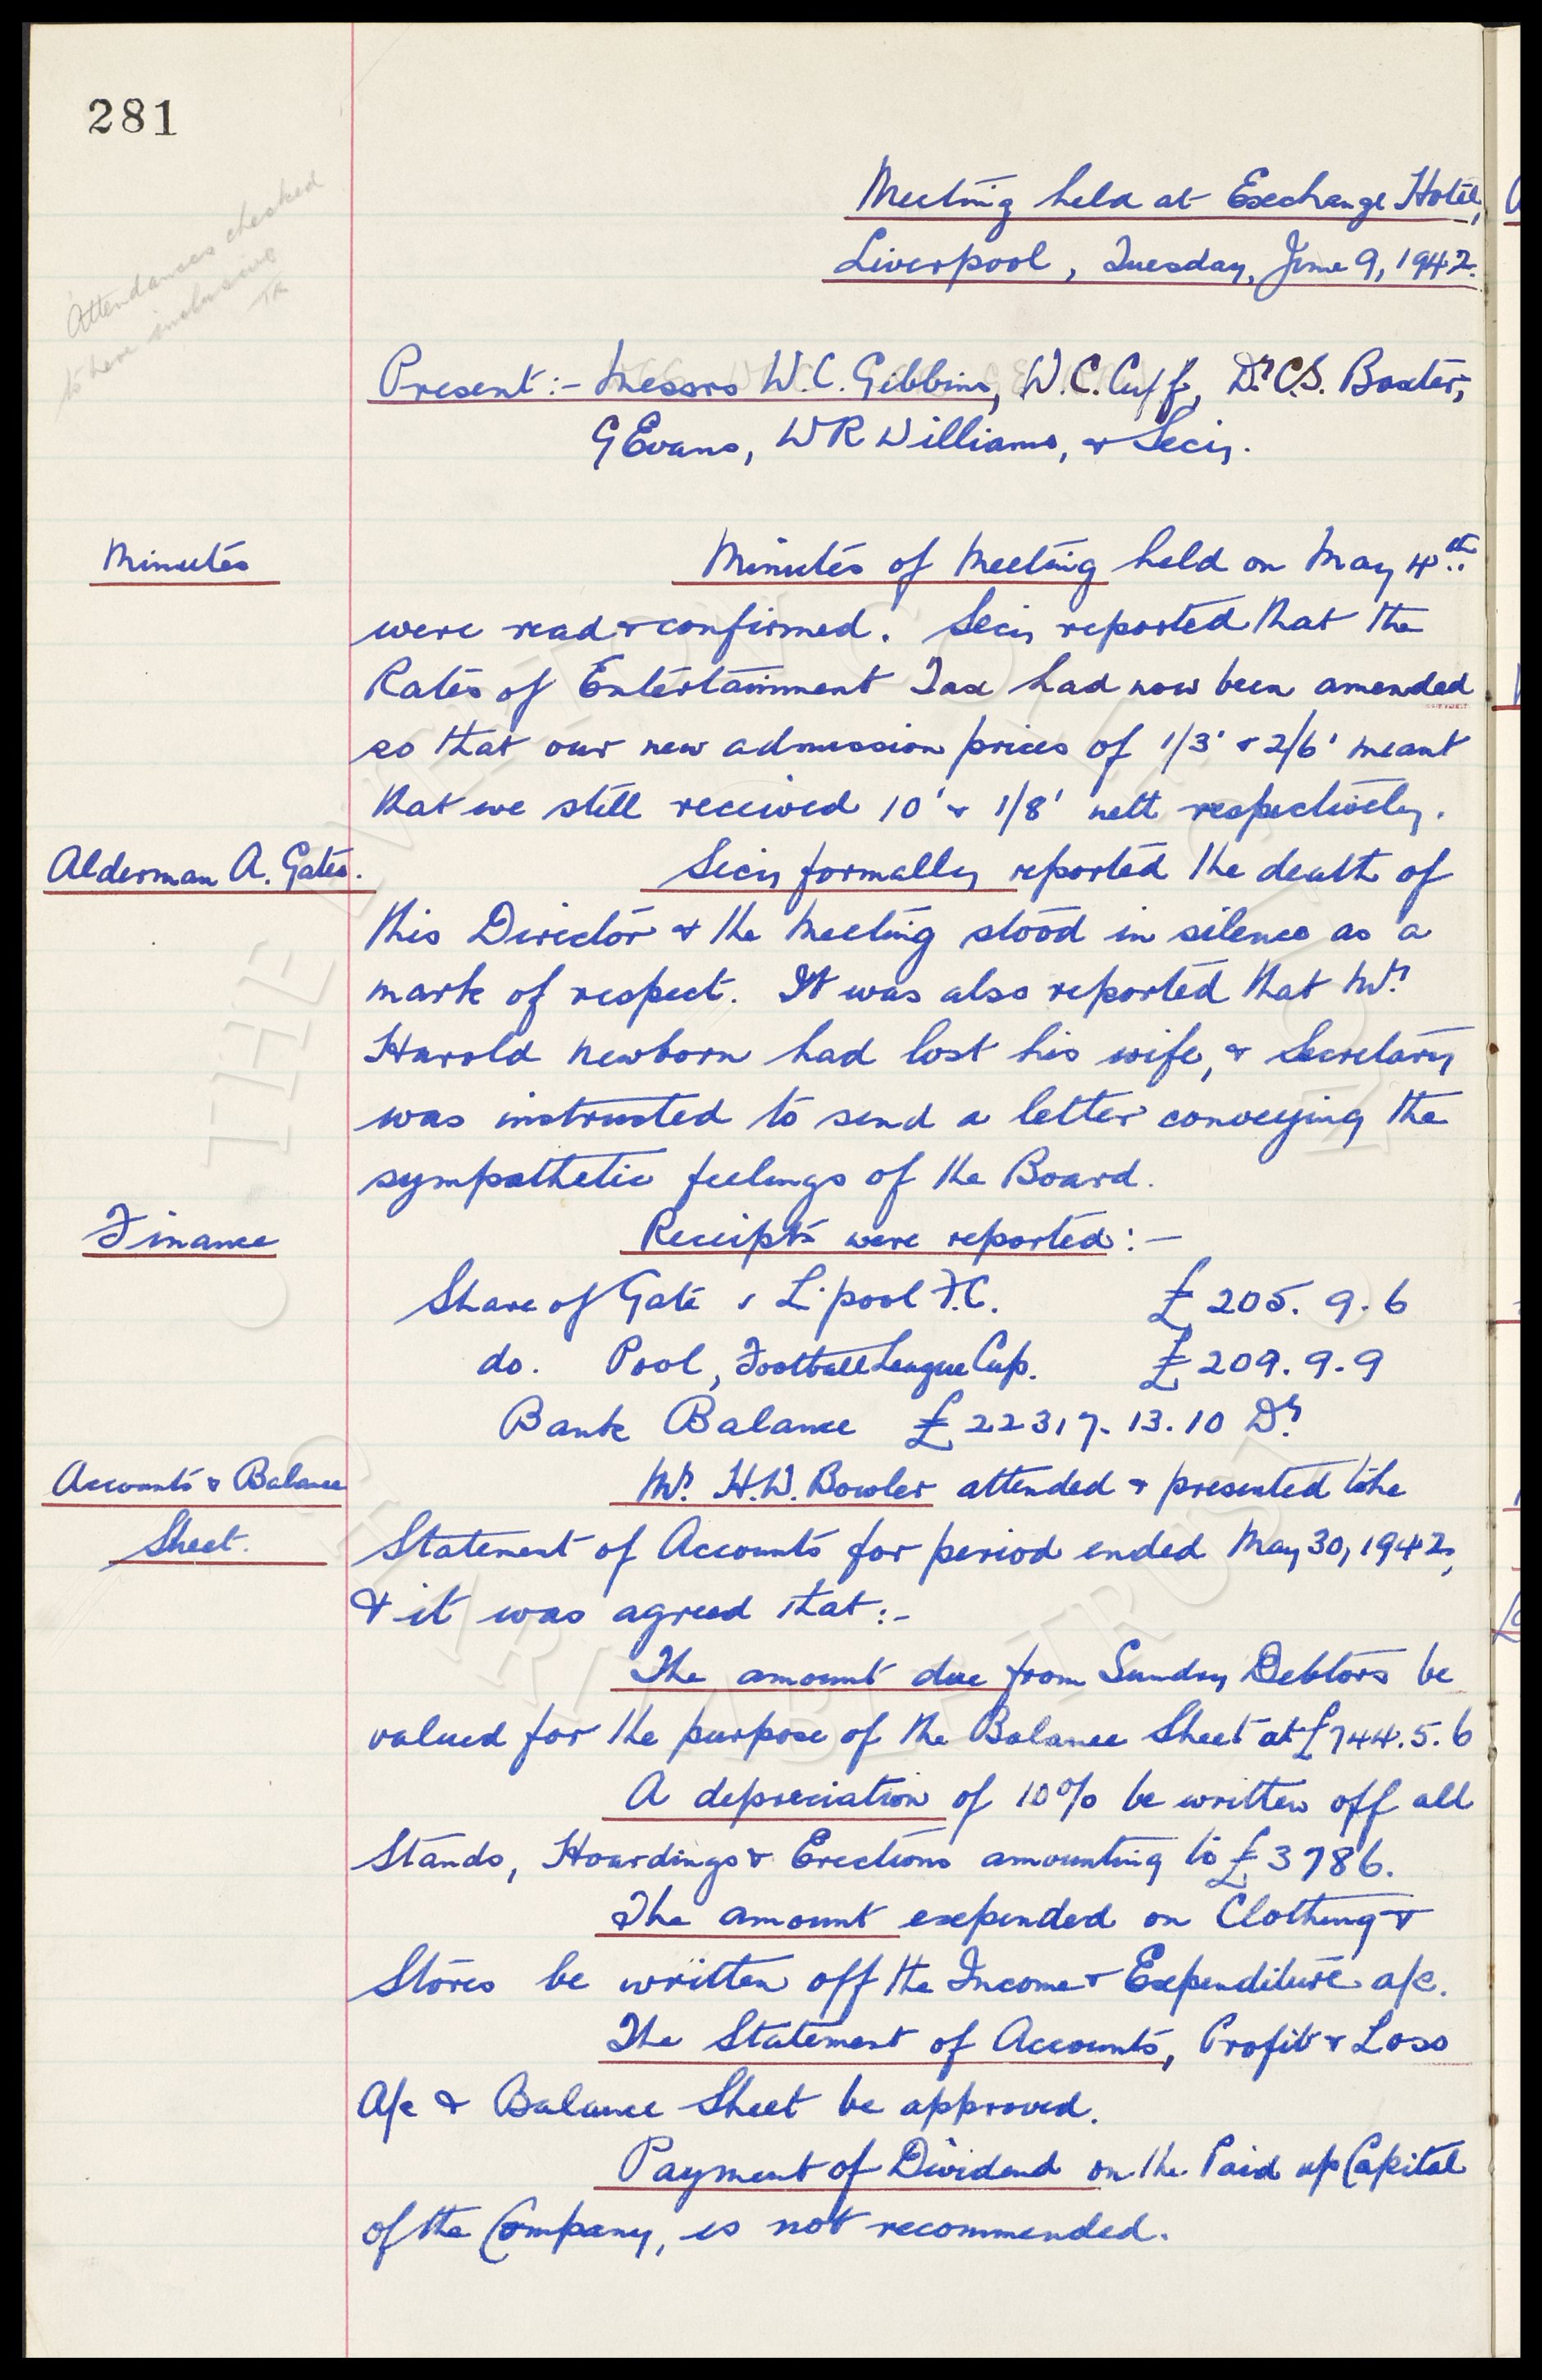 281
Attendances checked
to here inclusive
Meeting held at Exchange Hotel,
Liverpool, Tuesday, June 9, 1942.
Present:- Messrs W.C. Gibbins, W.C. Cuff, Dr. C.S. Baxter,
G Evans, WR Williams, & Secy.
Minutes
Minutes of Meeting held on May 4th.
were read & confirmed. Secy reported that the
Rates of Entertainment Tax had now been amended
so that our new admission prices of 1/3' & 2/6' meant
that we still received 10' & 1/8' nett respectively.
Alderman A. Gates.
Secy formally reported the death of
this Director & the Meeting stood in silence as a
mark of respect. It was also reported that Mr.
Harold Newborn had lost his wife, & Secretary
was instructed to send a letter conveying the
sympathetic feelings of the Board.
Finance
Receipts were reported:-
Share of Gate, L'pool F.C. £205. 9. 6
do. Pool, Football League Cup. £209. 9. 9
Bank Balance £22317. 13. 10 Dr.
Accounts & Balance
Sheet.
Mr. H.W. Bowler attended & presented the
Statement of Accounts for period ended May 30, 1942,
& it was agreed that:-
The amount due from Sundry Debtors be
valued for the purpose of the Balance Sheet at £744. 5. 6
A depreciation of 10% be written off all
Stands, Hoardings & Erections amounting to £3786.
The amount expended on Clothing &
Stores be written off the Income & Expenditure a/c.
The Statement of Accounts, Profit & Loss
A/c & Balance Sheet be approved.
Payment of Dividend on the Paid up Capital
of the Company, is not recommended.
THE EVERTON COLLECTION
CHARITABLE TRUST